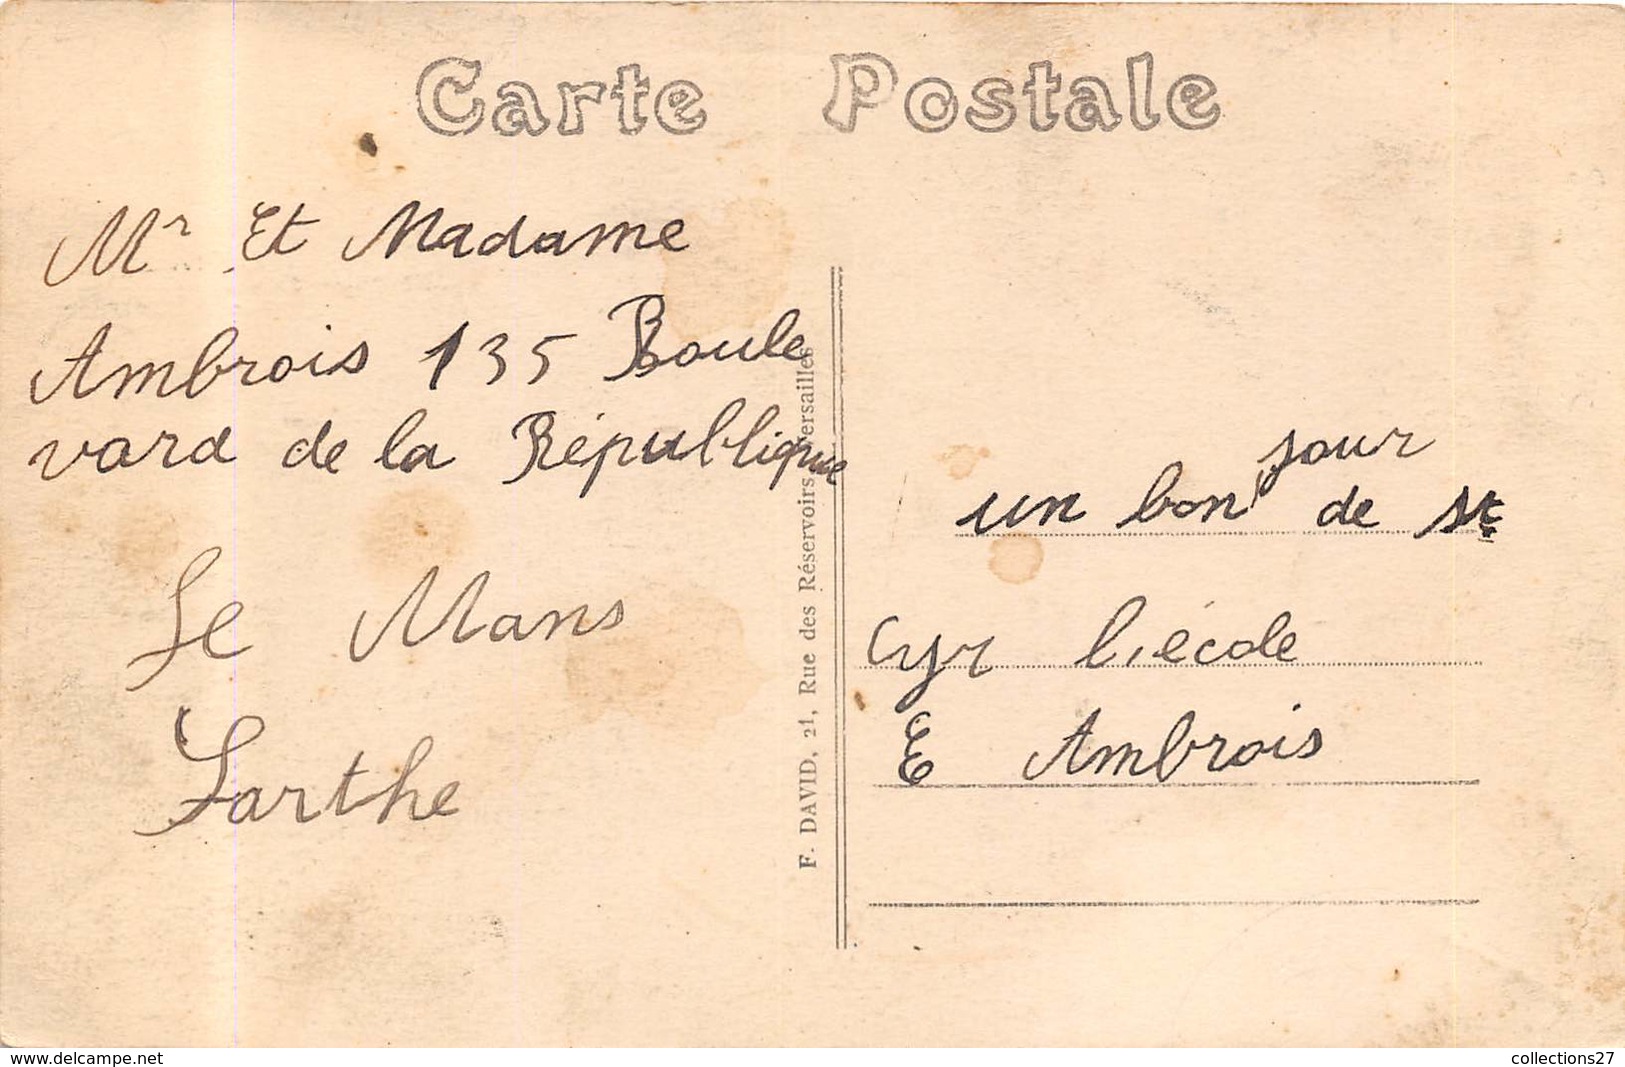 Carte Postale
Mr Et Madame
Ambrois 135 Boule
vard de la République
Le Mans
Sarthe
F. DAVID, 21, Rue des Réservoirs, Versailles
jour
un bon de St
Cyr l'école
E Ambrois
www.delcampe.net
collections27